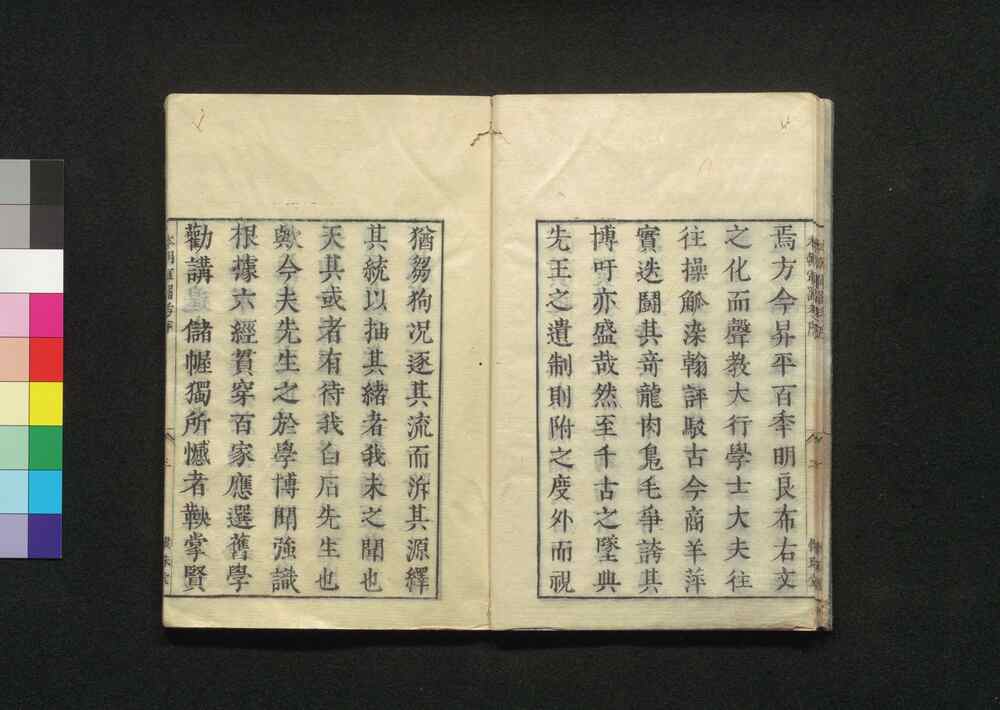 焉方今昇平百秊明良布右文
之化而聲教大行學士大夫往
往操觚染翰評駁古今商羊萍
實迭鬪其竒龍肉鳬毛爭誇其
博吁亦盛哉然至千古之墜典
先王之遺制則附之度外而視
猶芻狗况逐其流而泝其源繹
其統以抽其緒者我未之聞也
天其或者有待我白石先生也
歟今夫先生之於學博聞強識
根據六經貫穿百家應選舊學
勸講儲幄獨所憾者鞅掌賢